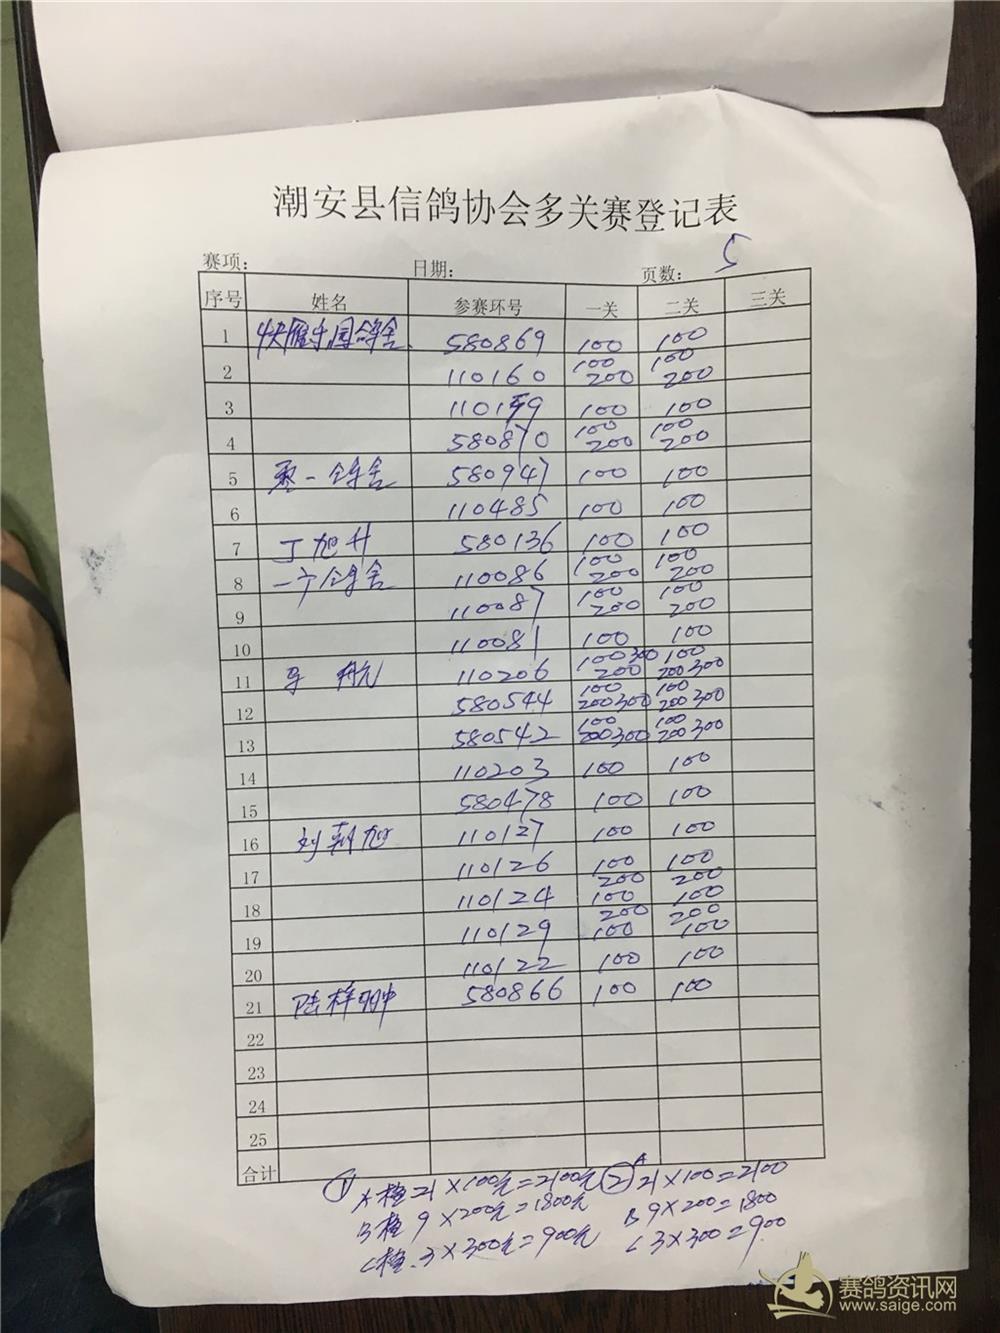 潮安县信鸽协会多关赛登记表
赛项： 日期： 页数： 5
序号 姓名 参赛环号 一关 二关 三关
1 快雁乐园鸽舍 580869 100 100
2 110160 100 200 100 200
3 110159 100 100
4 580870 100 200 100 200
5 聚一鸽舍 580947 100 100
6 110485 100 100
7 丁旭升 580136 100 100
8 一宁鸽舍 110086 100 200 100 200
9 110087 100 200 100 200
10 110081 100 100
11 航 110206 100 300 200 100 200 300
12 580544 100 200 300 100 200 300
13 580542 100 200 300 100 200 300
14 110203 100 100
15 580478 100 100
16 刘朝旭 110127 100 100
17 110126 100 200 100 200
18 110124 100 200 100 200
19 110129 100 100
20 110122 100 100
21 陆梓翀 580866 100 100
22
23
24
25
合计
① A组 21×100元=2100元 ② A 21×100=2100
B组 9×200元=1800元 B 9×200=1800
C组 3×300元=900元 C 3×300=900
赛鸽资讯网
www.saige.com